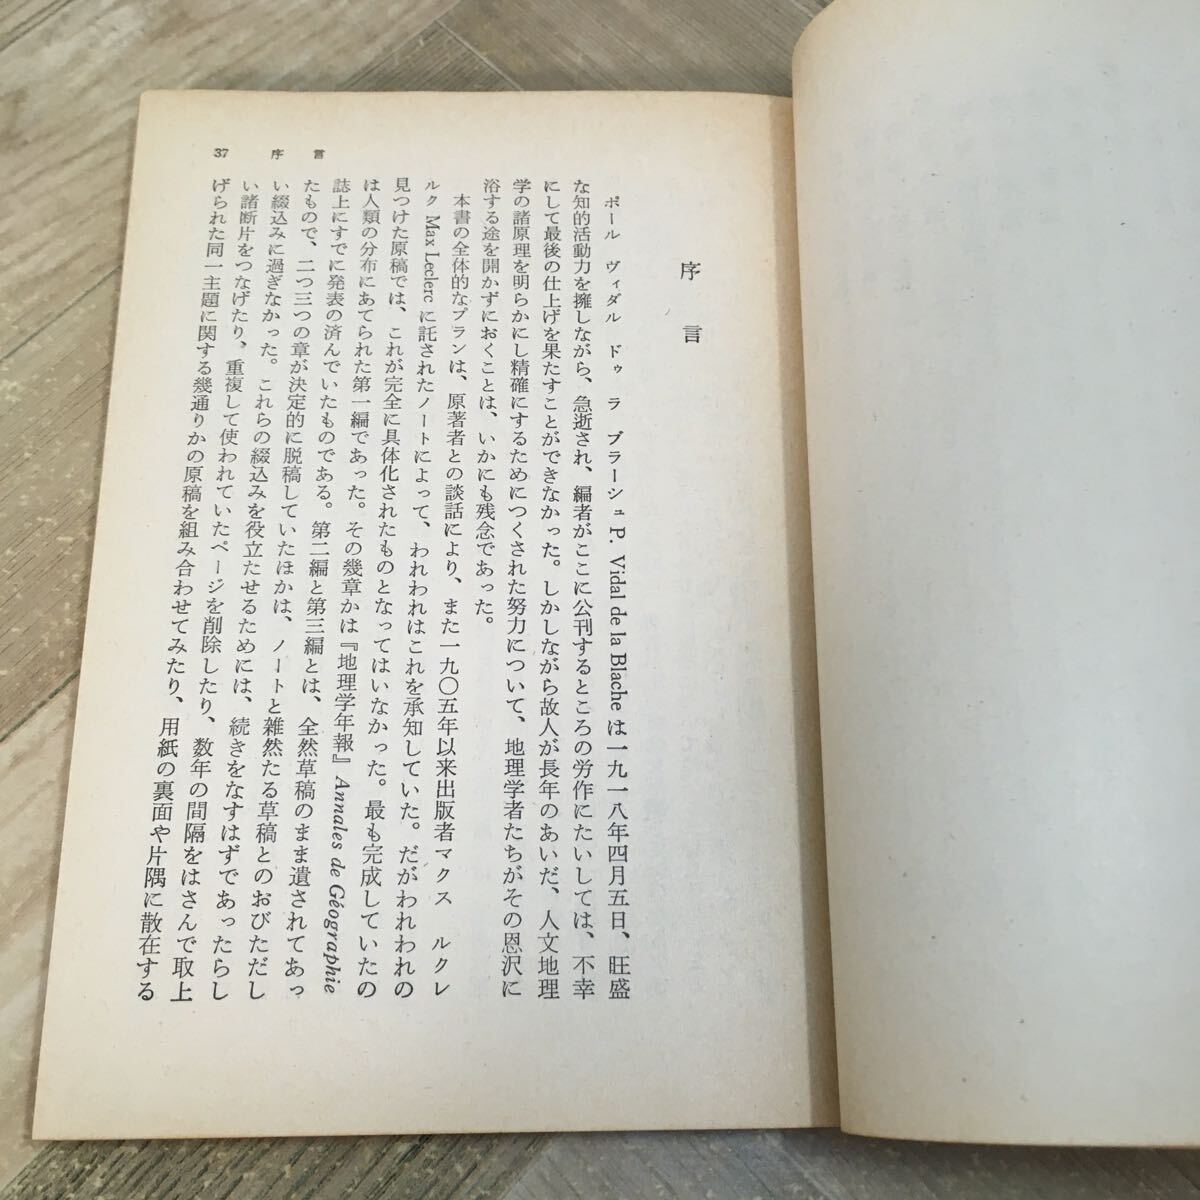 37 序言
序言
ポール ヴィダル ドゥ ラ ブラーシュ P. Vidal de la Blache は一九一八年四月五日、旺盛
な知的活動力を擁しながら、急逝され、編者がここに公刊するところの労作にたいしては、不幸
にして最後の仕上げを果たすことができなかった。しかしながら故人が長年のあいだ、人文地理
学の諸原理を明らかにし精確にするためにつくされた努力について、地理学者たちがその恩沢に
浴する途を開かずにおくことは、いかにも残念であった。
本書の全体的なプランは、原著者との談話により、また一九〇五年以来出版者マクス ルクレ
ルク Max Leclerc に託されたノートによって、われわれはこれを承知していた。だがわれわれの
見つけた原稿では、これが完全に具体化されたものとなってはいなかった。最も完成していたの
は人類の分布にあてられた第一編であった。その幾章かは『地理学年報』Annales de Géographie
誌上にすでに発表の済んでいたものである。第二編と第三編とは、全然草稿のまま遺されてあっ
たもので、二つ三つの章が決定的に脱稿していたほかは、ノートと雑然たる草稿とのおびただし
い綴込みに過ぎなかった。これらの綴込みを役立たせるためには、続きをなすはずであったらし
い諸断片をつなげたり、重複して使われていたページを削除したり、数年の間隔をはさんで取上
げられた同一主題に関する幾通りかの原稿を組み合わせてみたり、用紙の裏面や片隅に散在する